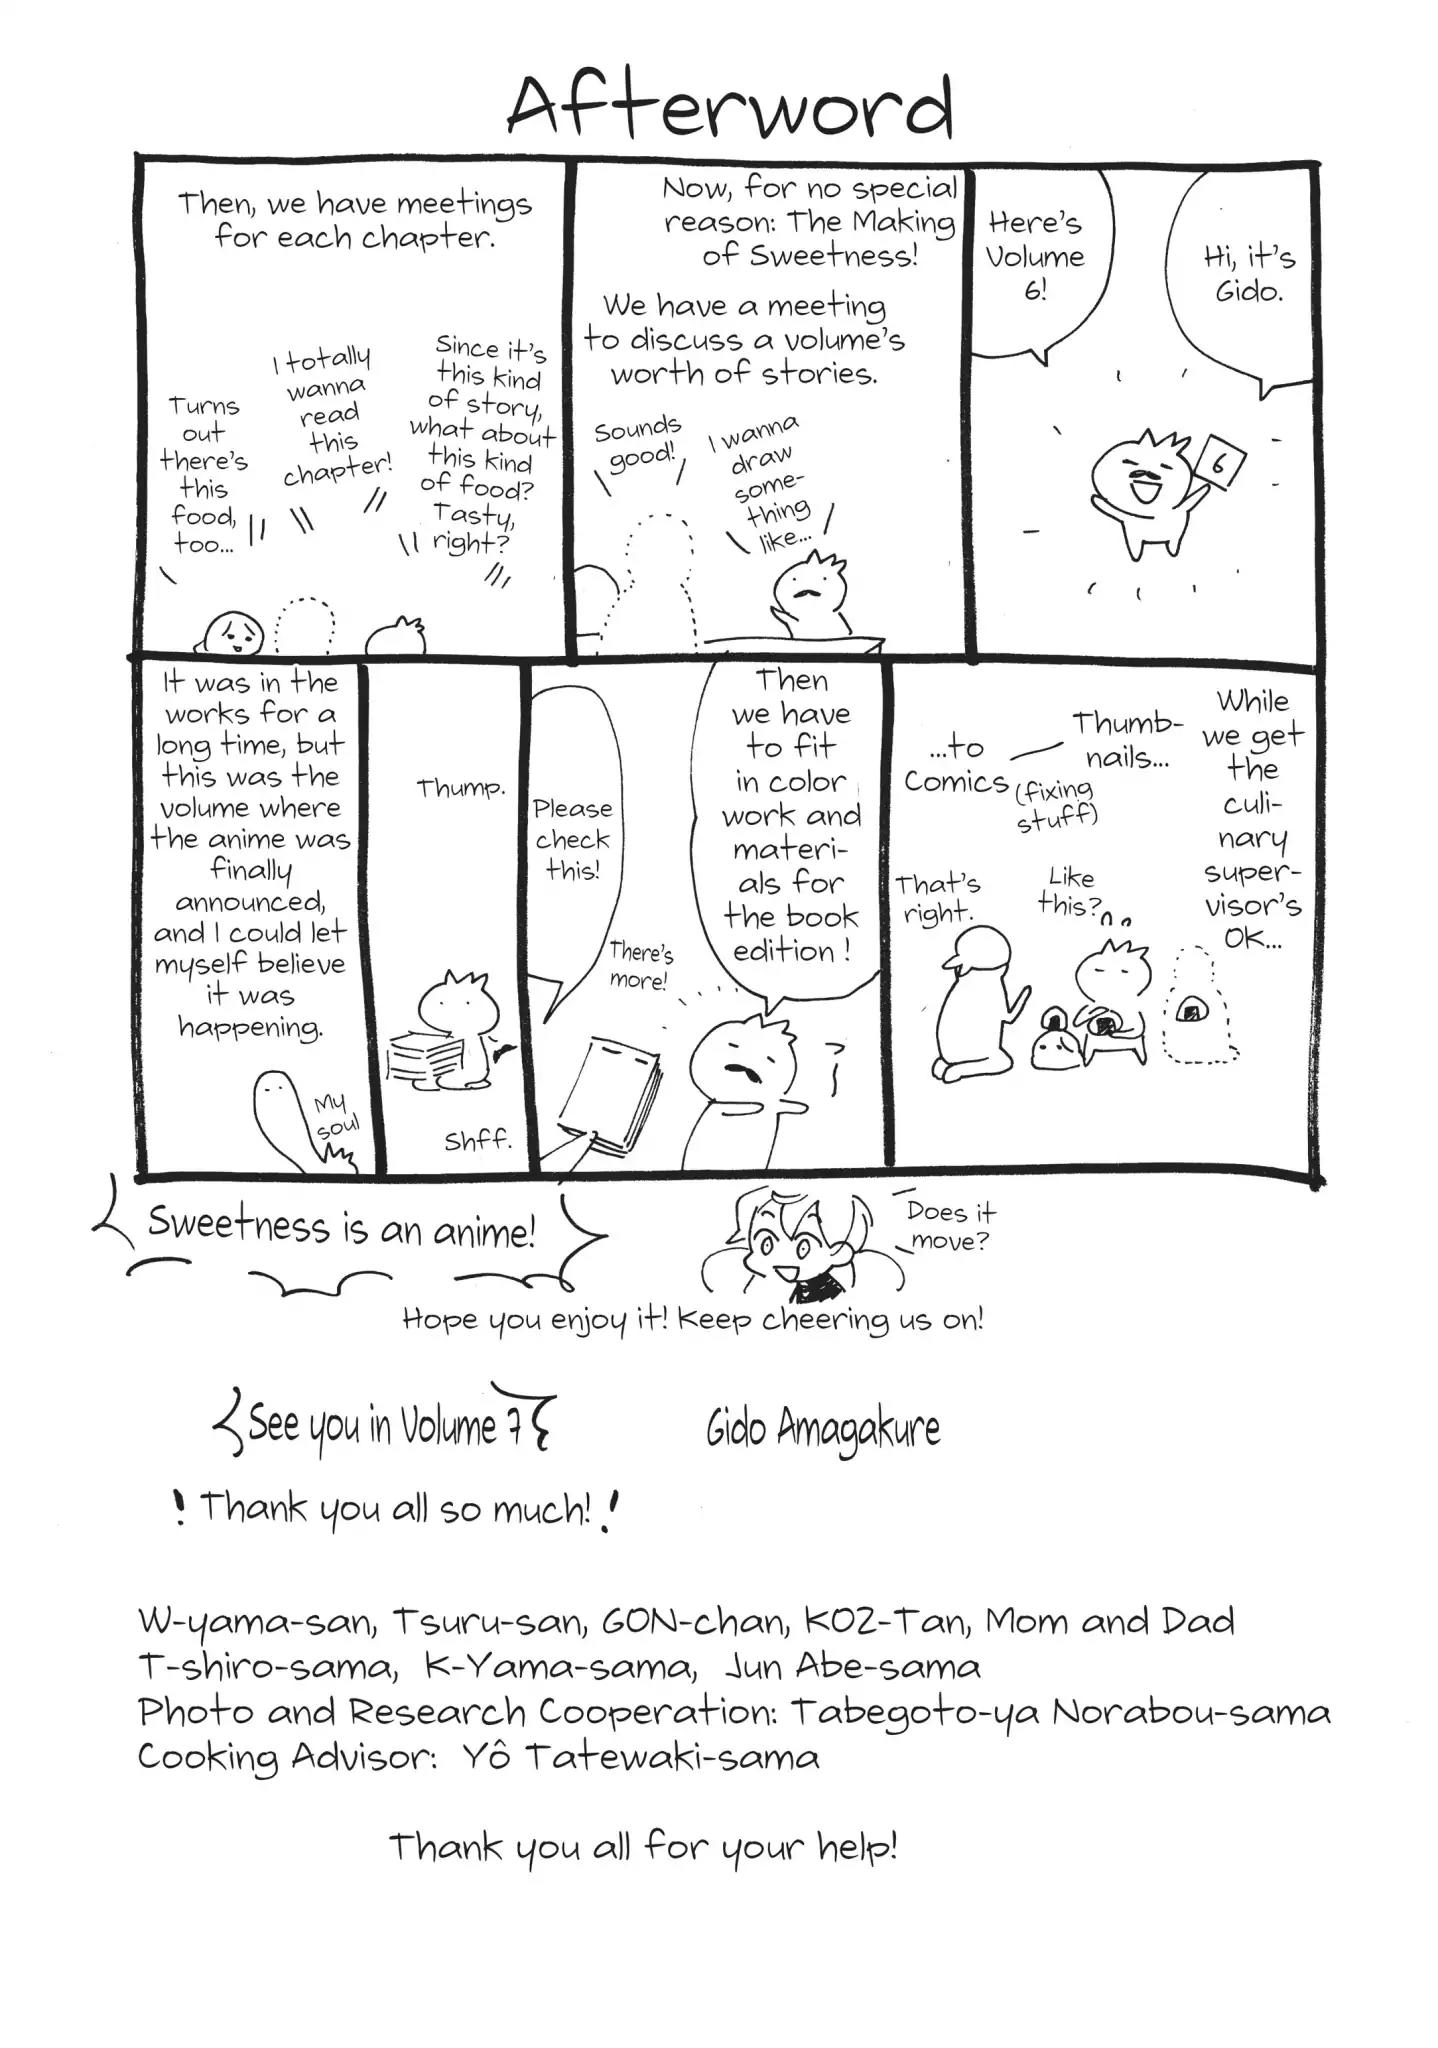 Afterword
Hi, it's
Gido.
Here's
Volume
6!
Now, for no special
reason: The Making
of Sweetness!
We have a meeting
to discuss a volume's
worth of stories.
I wanna
draw
some-
thing
like...
Sounds
good!
Then, we have meetings
for each chapter.
Since it's
this kind
of story,
what about
this kind
of food?
Tasty,
right?
I totally
wanna
read
this
chapter!
Turns
out
there's
this
food,
too...
While
we get
the
culi-
nary
super-
visor's
OK...
Thumb-
nails...
...to
Comics
(fixing
stuff)
Like
this?
That's
right.
Then
we have
to fit
in color
work and
materi-
als for
the book
edition!
There's
more!
Please
check
this!
Thump.
Shff.
It was in the
works for a
long time, but
this was the
volume where
the anime was
finally
announced,
and I could let
myself believe
it was
happening.
My
soul
Sweetness is an anime!
Does it
move?
Hope you enjoy it! Keep cheering us on!
See you in Volume 7
Gido Amagakure
! Thank you all so much! !
W-yama-san, Tsuru-san, GON-chan, KOZ-Tan, Mom and Dad
T-shiro-sama, K-Yama-sama, Jun Abe-sama
Photo and Research Cooperation: Tabegoto-ya Norabou-sama
Cooking Advisor: Yô Tatewaki-sama
Thank you all for your help!
6